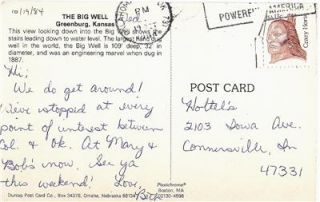 10/19/84
THE BIG WELL
Greenburg, Kansas
This view looking down into the Big Well shows the
stairs leading down to water level. The largest hand dug
well in the world, the Big Well is 109' deep, 32' in
diameter, and was an engineering marvel when dug in
1887.
Hi,
We do get around!
We've stopped at every
point of interest between
Col. & Ok. At Mary &
Bob's now. See ya
this weekend! Love,
Dunlap Post Card Co., Box 34376, Omaha, Nebraska 68134
Plastichrome
Boston, MA
PM
POWERFUL
AMERICA
Crazy Horse
POST CARD
Hottel's
2103 Iowa Ave.
Connersville, In
47331